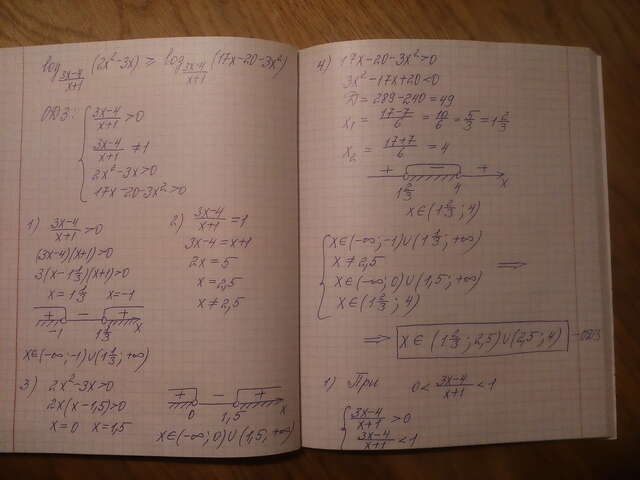 log_{(3x-4)/(x+1)} (2x²-3x) ≥ log_{(3x-4)/(x+1)} (17x-20-3x²)
ОДЗ: { (3x-4)/(x+1) >0
(3x-4)/(x+1) ≠1
2x²-3x>0
17x-20-3x²>0
1) (3x-4)/(x+1) >0
(3x-4)(x+1)>0
3(x-1⅓)(x+1)>0
x=1⅓ x=-1
+ - +
-1 1⅓ x
x∈(-∞;-1)∪(1⅓;+∞)
2) (3x-4)/(x+1) =1
3x-4=x+1
2x=5
x=2,5
x≠2,5
3) 2x²-3x>0
2x(x-1,5)>0
x=0 x=1,5
+ - +
0 1,5 x
x∈(-∞;0)∪(1,5;+∞)
4) 17x-20-3x²>0
3x²-17x+20<0
D=289-240=49
x₁= (17-7)/6 = 10/6 = 5/3 =1⅔
x₂= (17+7)/6 =4
+ - +
1⅔ 4 x
x∈(1⅔;4)
{ x∈(-∞;-1)∪(1⅓;+∞)
x≠2,5 ⟹
x∈(-∞;0)∪(1,5;+∞)
x∈(1⅔;4)
⟹ x∈(1⅔;2,5)∪(2,5;4) -ОДЗ
1) При 0< (3x-4)/(x+1) <1
{ (3x-4)/(x+1) >0
(3x-4)/(x+1) <1